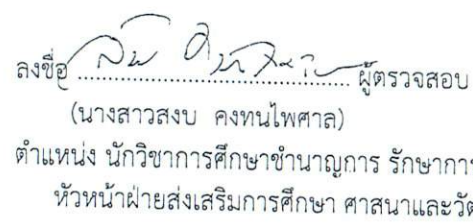 ลงชื่อ ........................................ ผู้ตรวจสอบ
(นางสาวสงบ คงทนไพศาล)
ตำแหน่ง นักวิชาการศึกษาชำนาญการ รักษาการ
หัวหน้าฝ่ายส่งเสริมการศึกษา ศาสนาและวัฒ